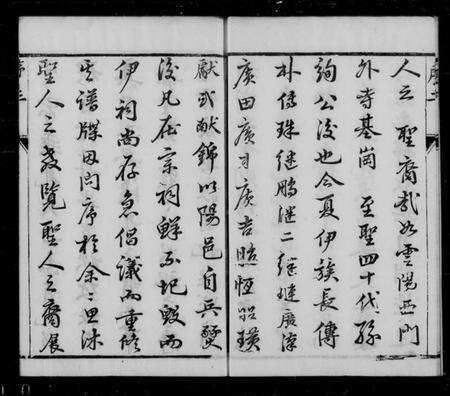 人之 聖裔哉如雲陽西門
外寺基崗 至聖四十代孫
詢公後也今夏伊族長傳
朴傳珠继鵬继二继廣淳
廣田廣才廣吉照恆昭璜
獻武献錦以陽邑自兵燹
後凡在宗祠鮮不圮毀而
伊祠尚存急倡議而重修
其譜牒因问序於余〻思沐
聖人之教覽聖人之裔展
序三